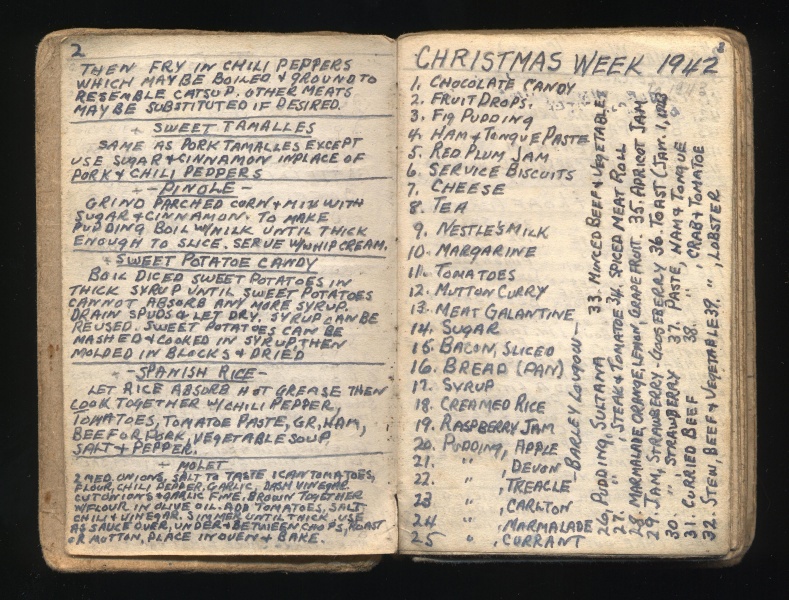 2
THEN FRY IN CHILI PEPPERS
WHICH MAY BE BOILED & GROUND TO
RESEMBLE CATSUP. OTHER MEATS
MAY BE SUBSTITUTED IF DESIRED.
+ SWEET TAMALLES
SAME AS PORK TAMALLES EXCEPT
USE SUGAR & CINNAMON IN PLACE OF
PORK & CHILI PEPPERS
- PINOLE -
GRIND PARCHED CORN & MIX WITH
SUGAR & CINNAMON. TO MAKE
PUDDING BOIL W/MILK UNTIL THICK
ENOUGH TO SLICE. SERVE W/WHIP CREAM.
+ SWEET POTATOE CANDY
BOIL DICED SWEET POTATOES IN
THICK SYRUP UNTIL SWEET POTATOES
CANNOT ABSORB ANY MORE SYRUP.
DRAIN SPUDS & LET DRY. SYRUP CAN BE
REUSED. SWEET POTATOES CAN BE
MASHED & COOKED IN SYRUP, THEN
MOLDED IN BLOCKS & DRIED
- SPANISH RICE -
LET RICE ABSORB HOT GREASE THEN
COOK TOGETHER W/CHILI PEPPER,
TOMATOES, TOMATOE PASTE, GR. HAM,
BEEF OR PORK, VEGETABLE SOUP,
SALT & PEPPER.
+ MOLET
2 MED. ONIONS, SALT TO TASTE 1 CAN TOMATOES,
FLOUR, CHILI PEPPER, GARLIC, DASH VINEGAR.
CUT ONIONS & GARLIC FINE, BROWN TOGETHER
W/FLOUR IN OLIVE OIL. ADD TOMATOES, SALT,
CHILI & VINEGAR. SIMMER UNTIL THICK. USE
AS SAUCE OVER, UNDER & BETWEEN CHOPS, ROAST
OR MUTTON, PLACE IN OVEN & BAKE.
CHRISTMAS WEEK 1942
1. CHOCOLATE CANDY
2. FRUIT DROPS.
3. FIG PUDDING
4. HAM & TONGUE PASTE
5. RED PLUM JAM
6. SERVICE BISCUITS
7. CHEESE
8. TEA
9. NESTLE'S MILK
10. MARGARINE
11. TOMATOES
12. MUTTON CURRY
13. MEAT GALANTINE
14. SUGAR
15. BACON, SLICED
16. BREAD (PAN)
17. SYRUP
18. CREAMED RICE
19. RASPBERRY JAM
20. PUDDING, APPLE
21. " , DEVON
22. " , TREACLE
23 " , CARLTON
24 " , MARMALADE
25 " , CURRANT
26. PUDDING, SULTANA 33. MINCED BEEF & VEGETABLES
27. " , STEAK & TOMATOE 34. SPICED MEAT ROLL
28. MARMALADE, ORANGE, LEMON, GRAPEFRUIT. 35. APRICOT JAM
29. JAM, STRAWBERRY-GOOSEBERRY 36. TOAST (JAN. 1, 1943
30 " STRAWBERRY 37. PASTE, HAM & TONGUE
31. CURRIED BEEF 38. " , CRAB & TOMATOE
32. STEW, BEEF & VEGETABLE 39. " , LOBSTER